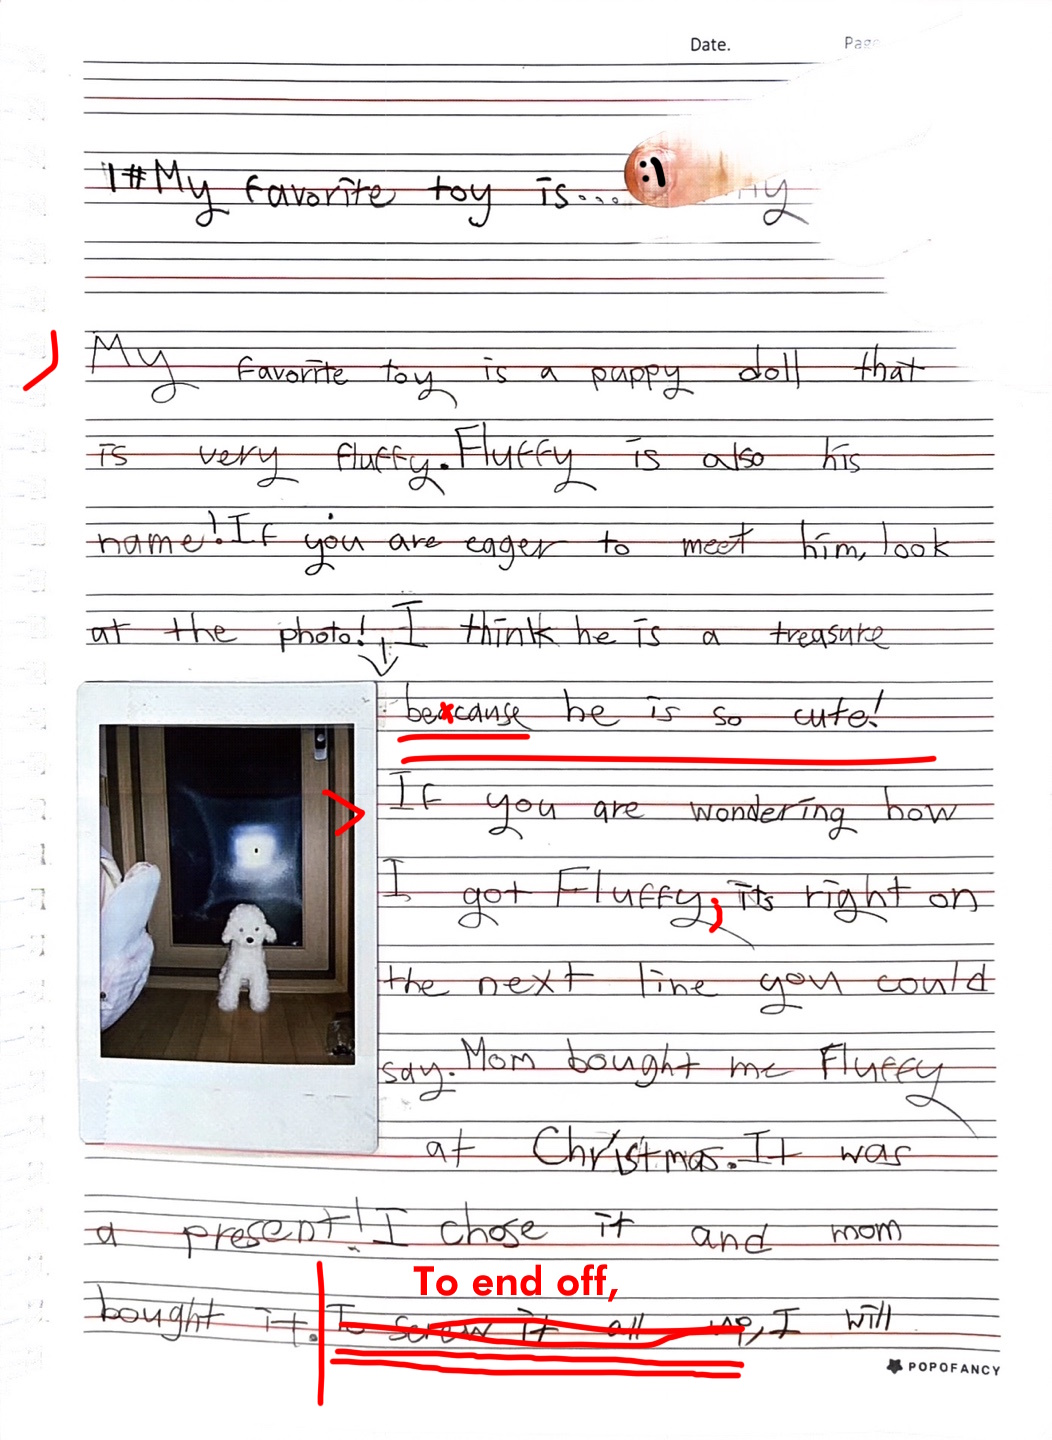 Date.
Page
1#My favorite toy is...
:)
My favorite toy is a puppy doll that
is very fluffy. Fluffy is also his
name! If you are eager to meet him, look
at the photo! I think he is a treasure
beacause he is so cute!
If you are wondering how
I got Fluffy, its right on
the next line you could
say. Mom bought me Fluffy
at Christmas. It was
a present! I chose it and mom
To end off,
bought it. To screw it all up, I will
POPOFANCY